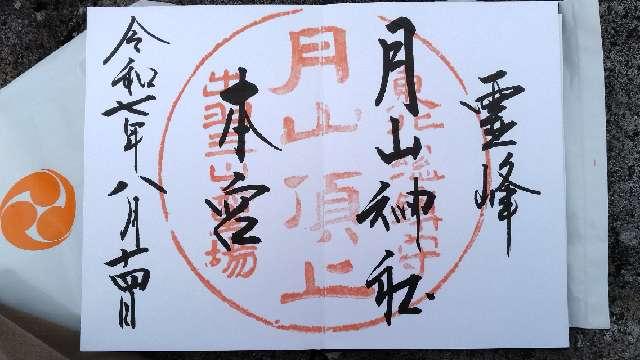 霊峰
月山神社
本宮
令和七年八月十四日
東北総鎮守
月山頂上
出羽三山霊場